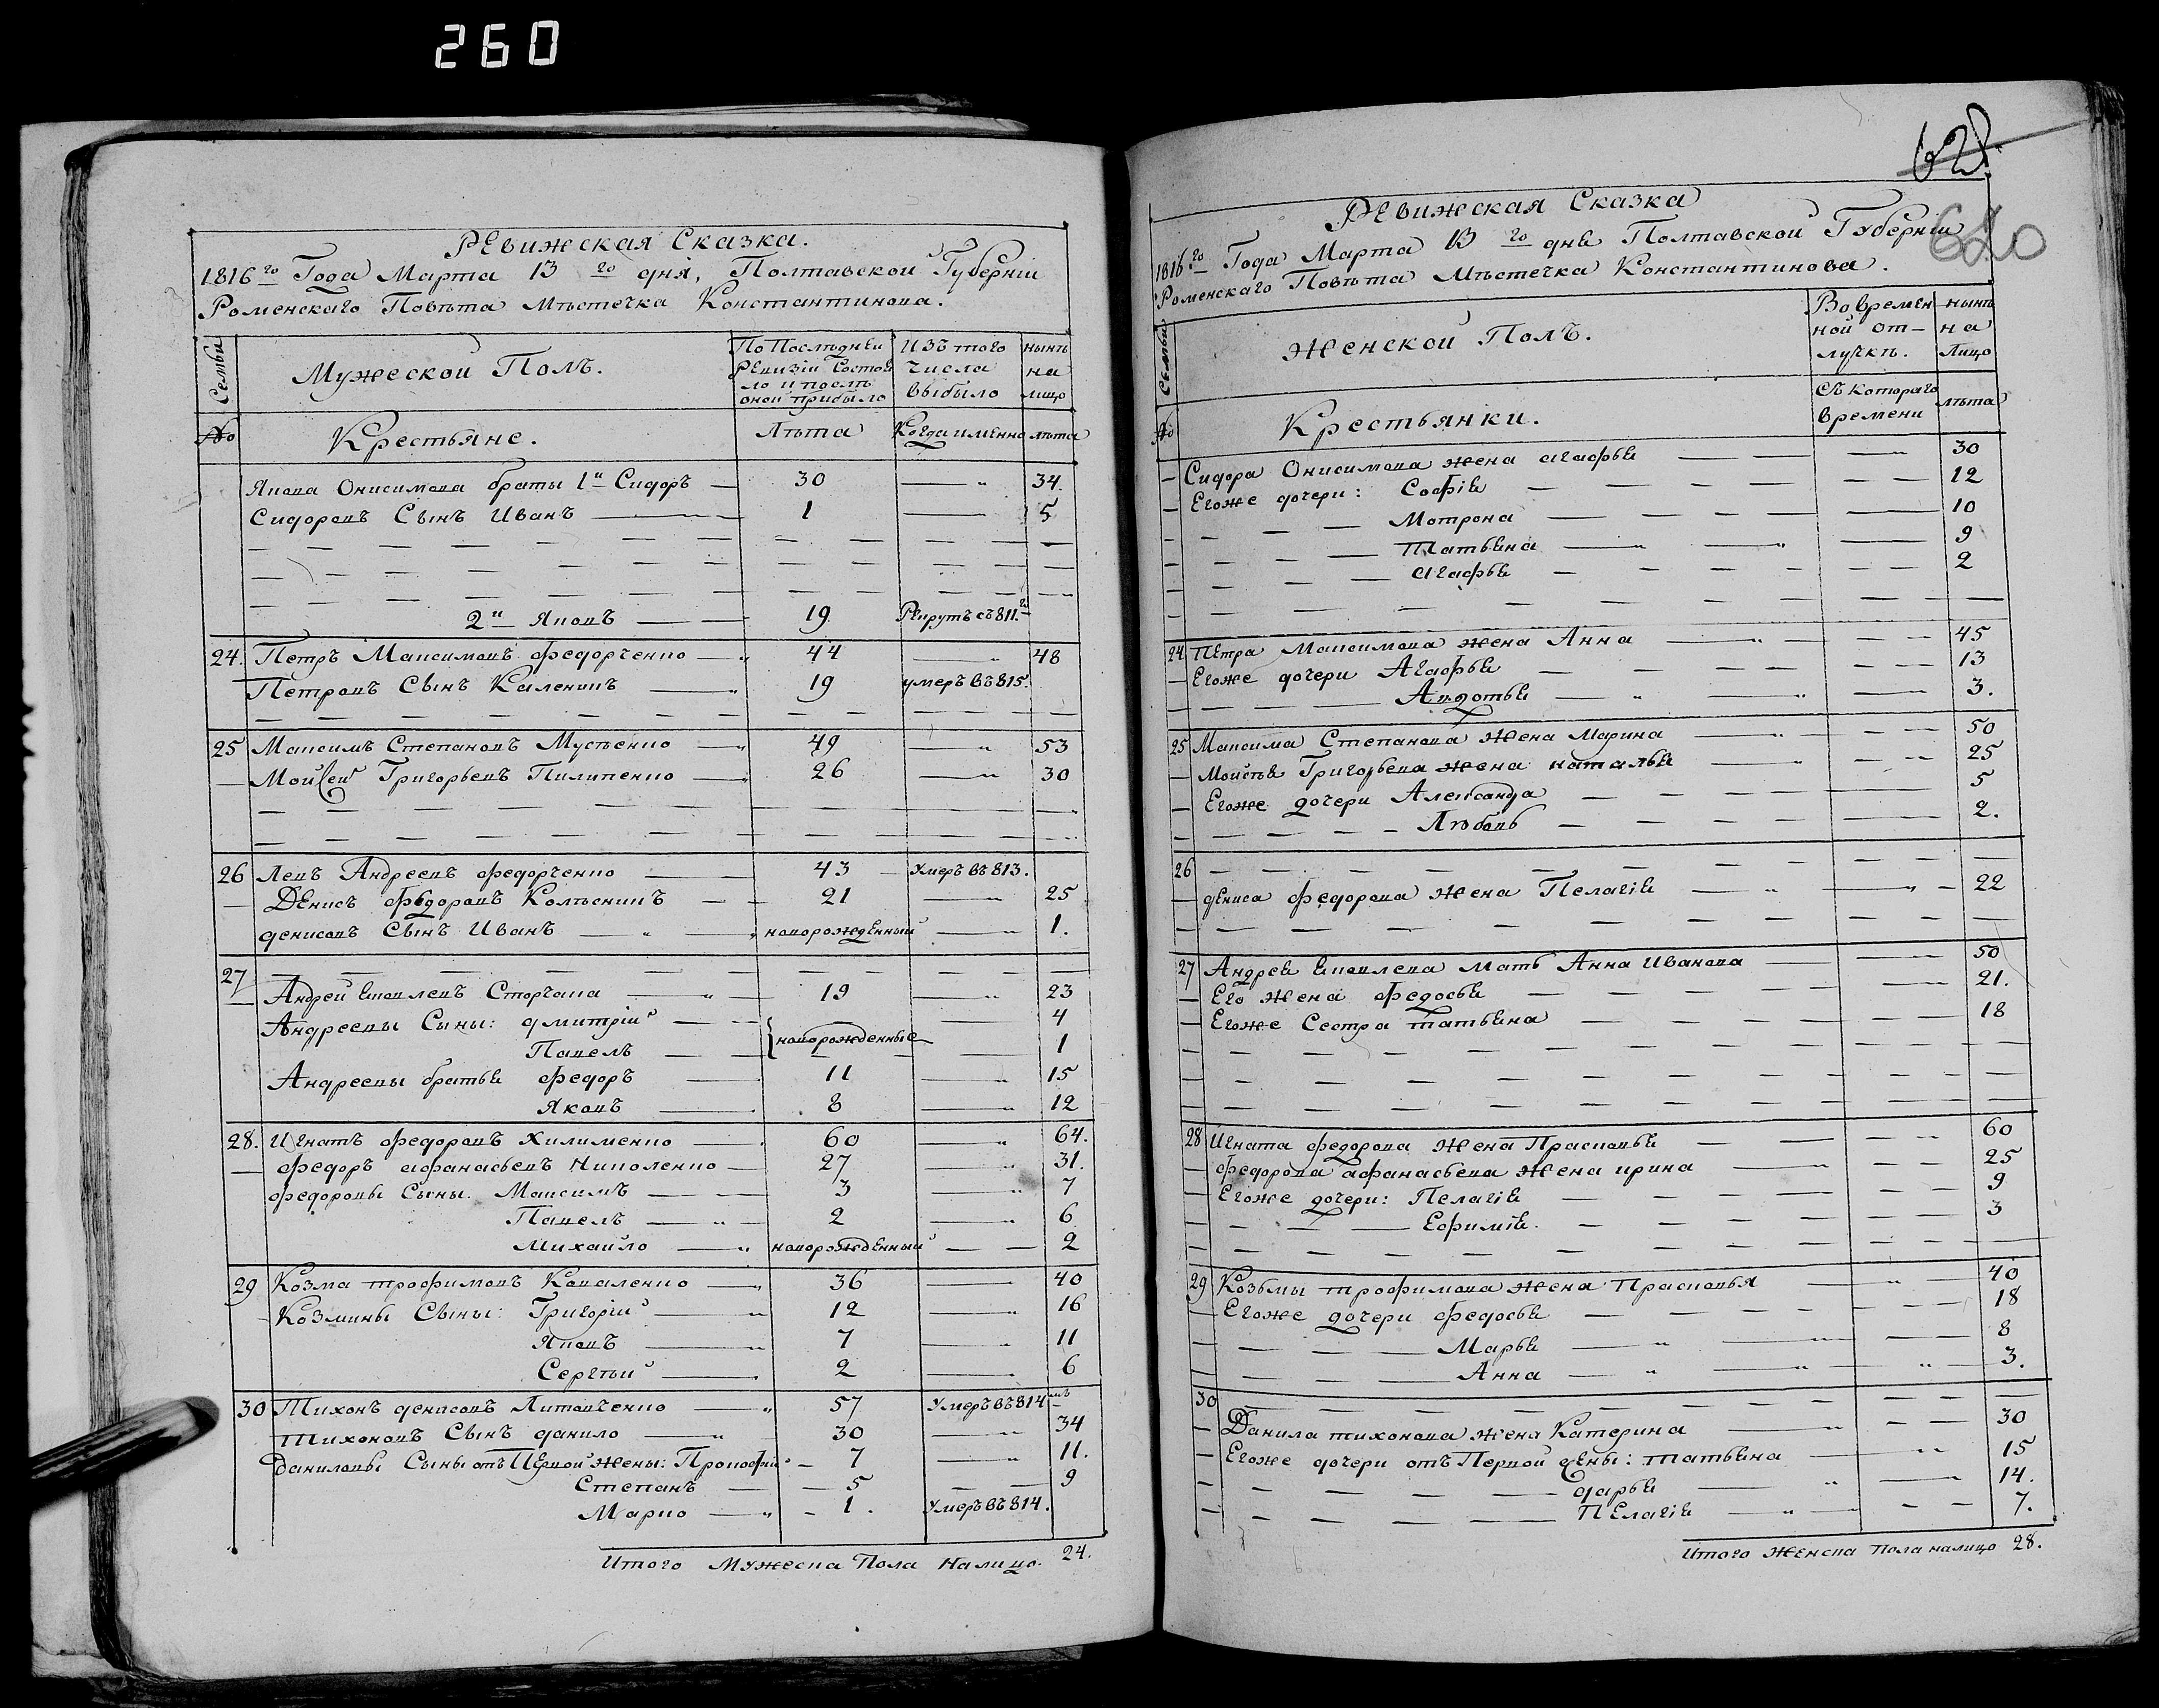 260
Ревижская Сказка.
1816го Года Марта 13 го дня, Полтавской Губерніи
Роменскаго Повѣта Мѣстечка Константинова.
Семьи
Мужеской Полъ.
По Послѣдней Ревизіи Состояло и послѣ оной прибыло
Изъ того числа выбыло
нынѣ на лицо
№
Крестьяне.
Лѣта
Когда именно
лѣта
Якова Онисимова браты 1й Сидоръ — 30 — 34.
Сидоровъ Сынъ Иванъ — 1 — 5
2й Яковъ — 19 Рекрутъ съ 811го
24. Петръ Максимовъ Федорченко — 44 — 48
Петровъ Сынъ Каленикъ — 19 умеръ въ 815.
25 Максимъ Степановъ Мусѣенко — 49 — 53
Мойсей Григорьевъ Пилипенко — 26 — 30
26 Левъ Андреевъ Федорченко — 43 — Умеръ въ 813.
Денисъ Федоровъ Колѣсникъ — 21 — 25
денисовъ Сынъ Иванъ — новорожденный — 1.
27
Андрей Яковлевъ Сторчака — 19 — 23
Андреевы Сыны: дмитрій — 4
новорожденные
Павелъ — 1
Андреевы братья Федоръ — 11 — 15
Яковъ — 8 — 12
28. Игнатъ Федоровъ Хилименко — 60 — 64.
Федоръ Афанасьевъ Николенко — 27 — 31.
Федоровы Сыны. Максимъ — 3 — 7
Павелъ — 2 — 6
Михайло — новорожденный — 2
29 Козма трофимовъ Коваленко — 36 — 40
Козмины Сыны: Григорій — 12 — 16
Яковъ — 7 — 11
Сергѣй — 2 — 6
30 Тихонъ денисовъ Литовченко — 57 Умеръ въ 814мъ
Тихоновъ Сынъ данило — 30 — 34
Даниловы Сыны отъ Первой жены: Прокофій — 7 — 11.
Степанъ — 5 — 9
Марко — 1. Умеръ въ 814.
Итого Мужеска Пола Налицо. 24.
628.
620
Ревижская Сказка
1816го Года Марта 13 го дня Полтавской Губерніи
Роменскаго Повѣта Мѣстечка Константинова.
Семьи
Женской Полъ.
Во временной отлучкѣ.
нынѣ на Лицо
№
Крестьянки.
Съ котораго времени
лѣта
Сидора Онисимова жена агафья — 30
Егоже дочери: Софія — 12
Мотрона — 10
Татьяна — 9
агафья — 2
24 Петра Максимова жена Анна — 45
Егоже дочери Агафья — 13
Авдотья — 3.
25 Максима Степанова Жена Марина — 50
Мойсѣя Григорьева жена наталья — 25
Егоже дочери Александра — 5
Любовь — 2.
26
дениса Федорова Жена Пелагія — 22
27 Андрея Яковлева Мать Анна Иванова — 50
Его Жена Федосья — 21.
Егоже Сестра татьяна — 18
28 Игната Федорова Жена Прасковья — 60
Федорова афанасьева Жена ирина — 25
Егоже дочери: Пелагія — 9
Ефимія. — 3
29 Козьмы трофимова Жена Прасковья — 40
Егоже дочери Федосья — 18
Марья — 8
Анна — 3.
30
Данила тихонова Жена Катерина — 30
Егоже дочери отъ Первой Жены: татьяна — 15
дарья — 14.
Пелагія — 7.
Итого Женска Пола налицо 28.